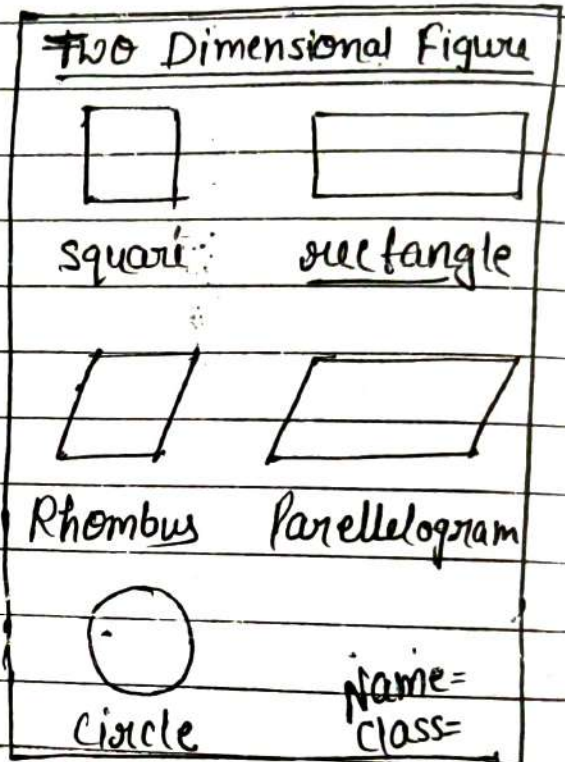 Two Dimensional Figure
squari rectangle
Rhombus Parellelogram
Name=
circle Class=